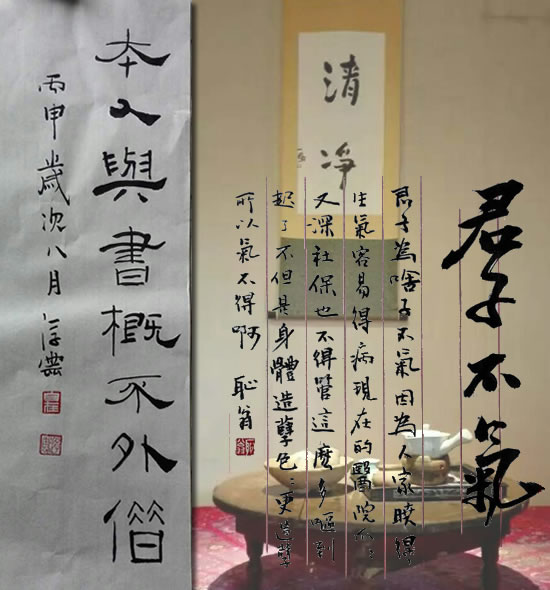 君子不氣
君子為啥子不氣因為人家曉得
生氣容易得病現在的醫院
又深社保也不得管這麼多嘔到
起了不但是身體造孽包:更造孽
所以氣不得啊 恥翁
清淨
本人與書概不外借
丙申歲次八月